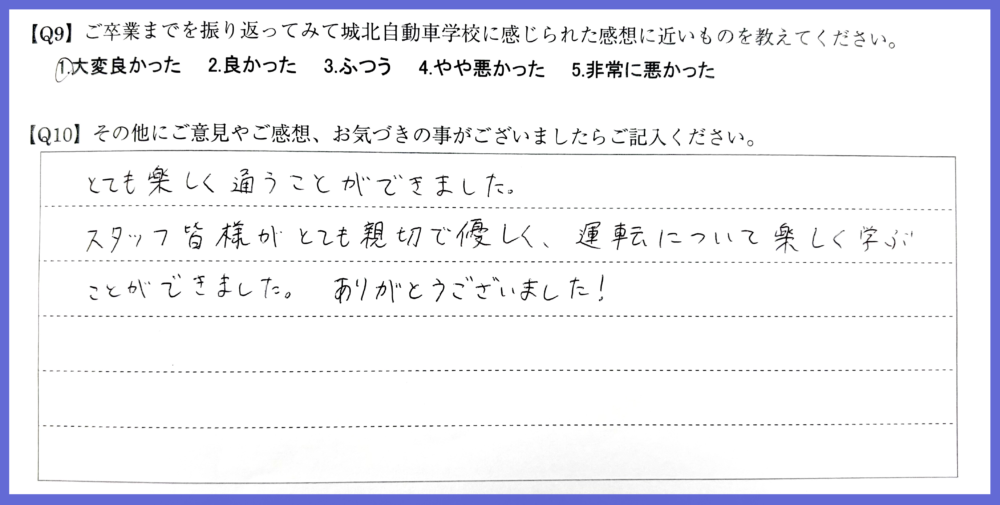 【Q9】ご卒業までを振り返ってみて城北自動車学校に感じられた感想に近いものを教えてください。
1.大変良かった 2.良かった 3.ふつう 4.やや悪かった 5.非常に悪かった
【Q10】その他にご意見やご感想、お気づきの事がございましたらご記入ください。
とても楽しく通うことができました。
スタッフ皆様がとても親切で優しく、運転について楽しく学ぶ
ことができました。 ありがとうございました!